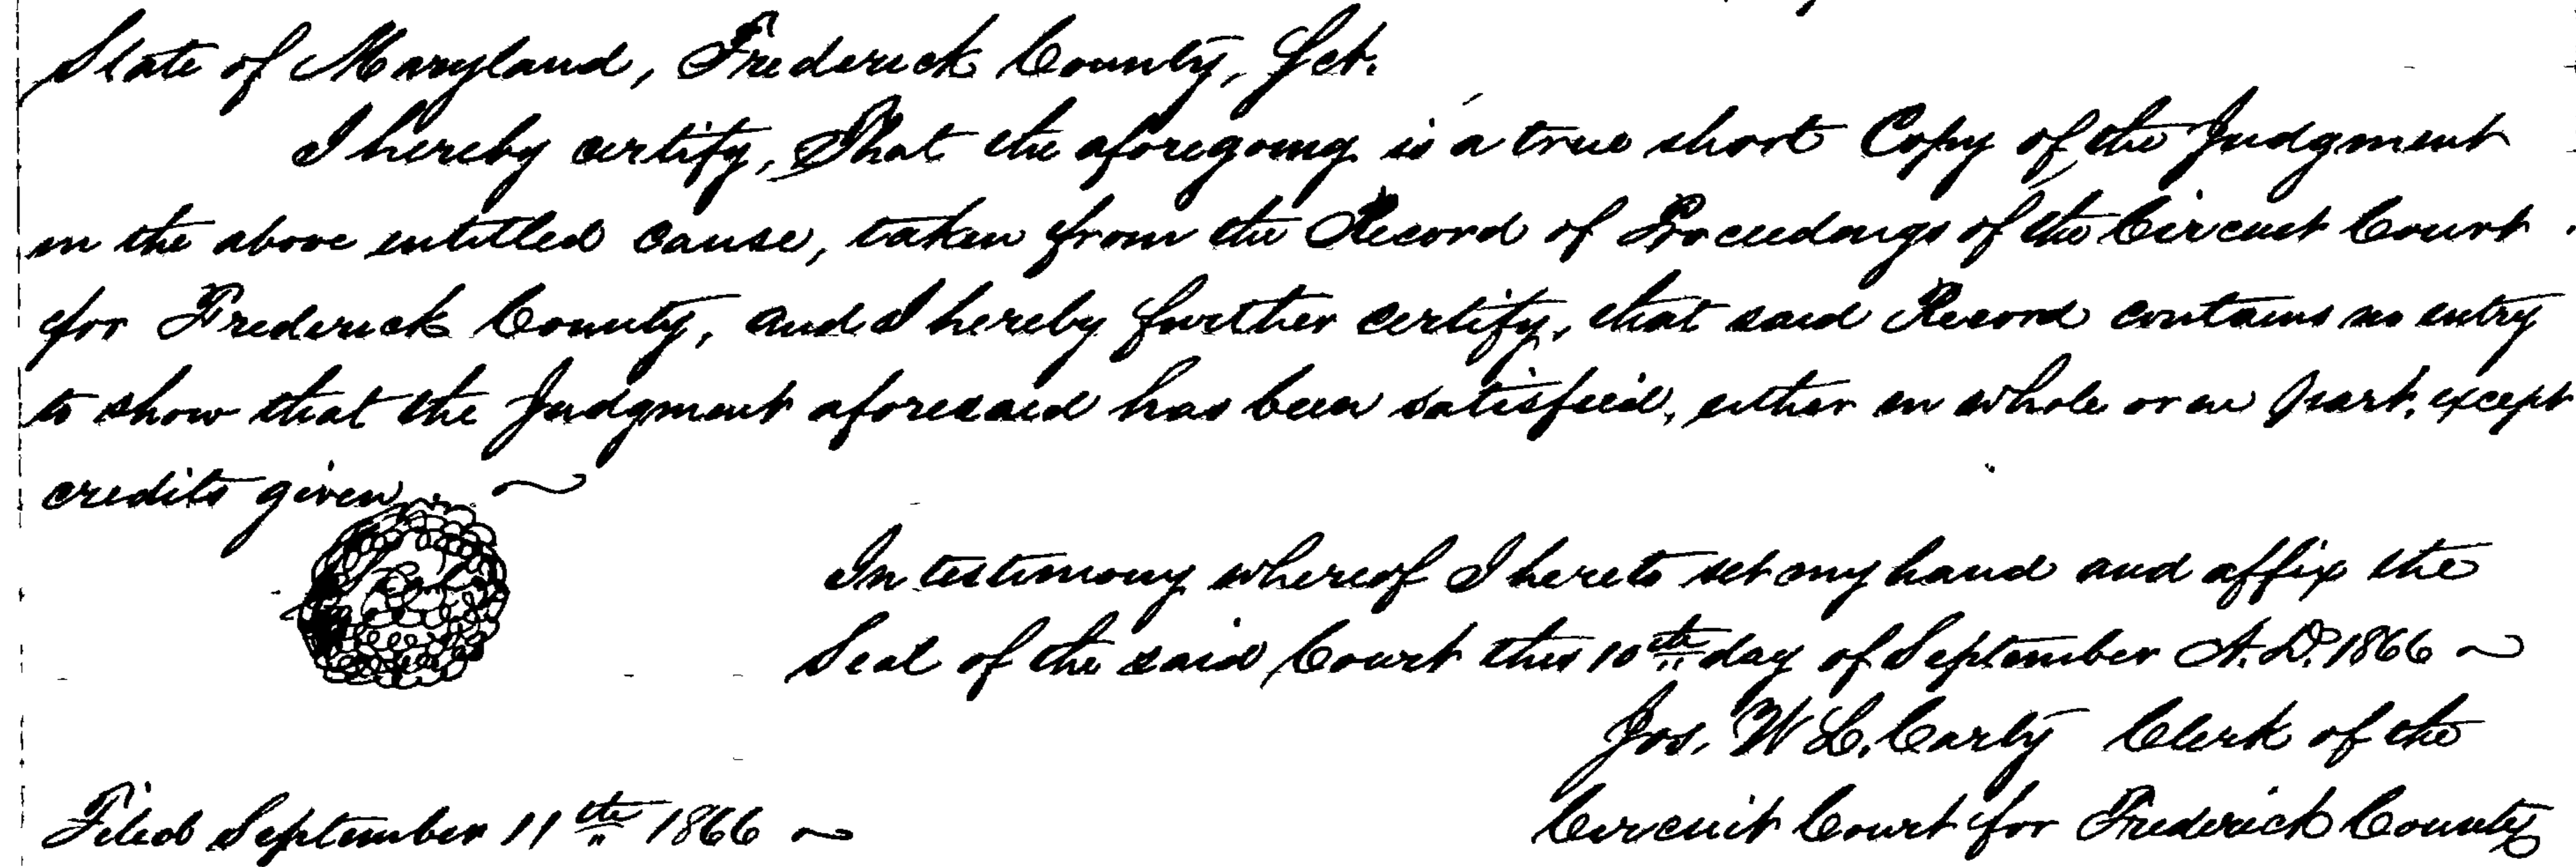 State of Maryland, Frederick County, Sct.
I hereby certify, That the aforegoing is a true short Copy of the Judgment
in the above entitled cause, taken from the Record of Proceedings of the Circuit Court
for Frederick County, and I hereby further certify, that said Record contains no entry
to show that the Judgment aforesaid has been satisfied, either in whole or in part, except
credits given ~
Seal
In testimony whereof I hereto set my hand and affix the
Seal of the said Court this 10th day of September A.D. 1866 ~
Jos. W L. Carty Clerk of the
Circuit Court for Frederick County
Filed September 11th 1866 ~